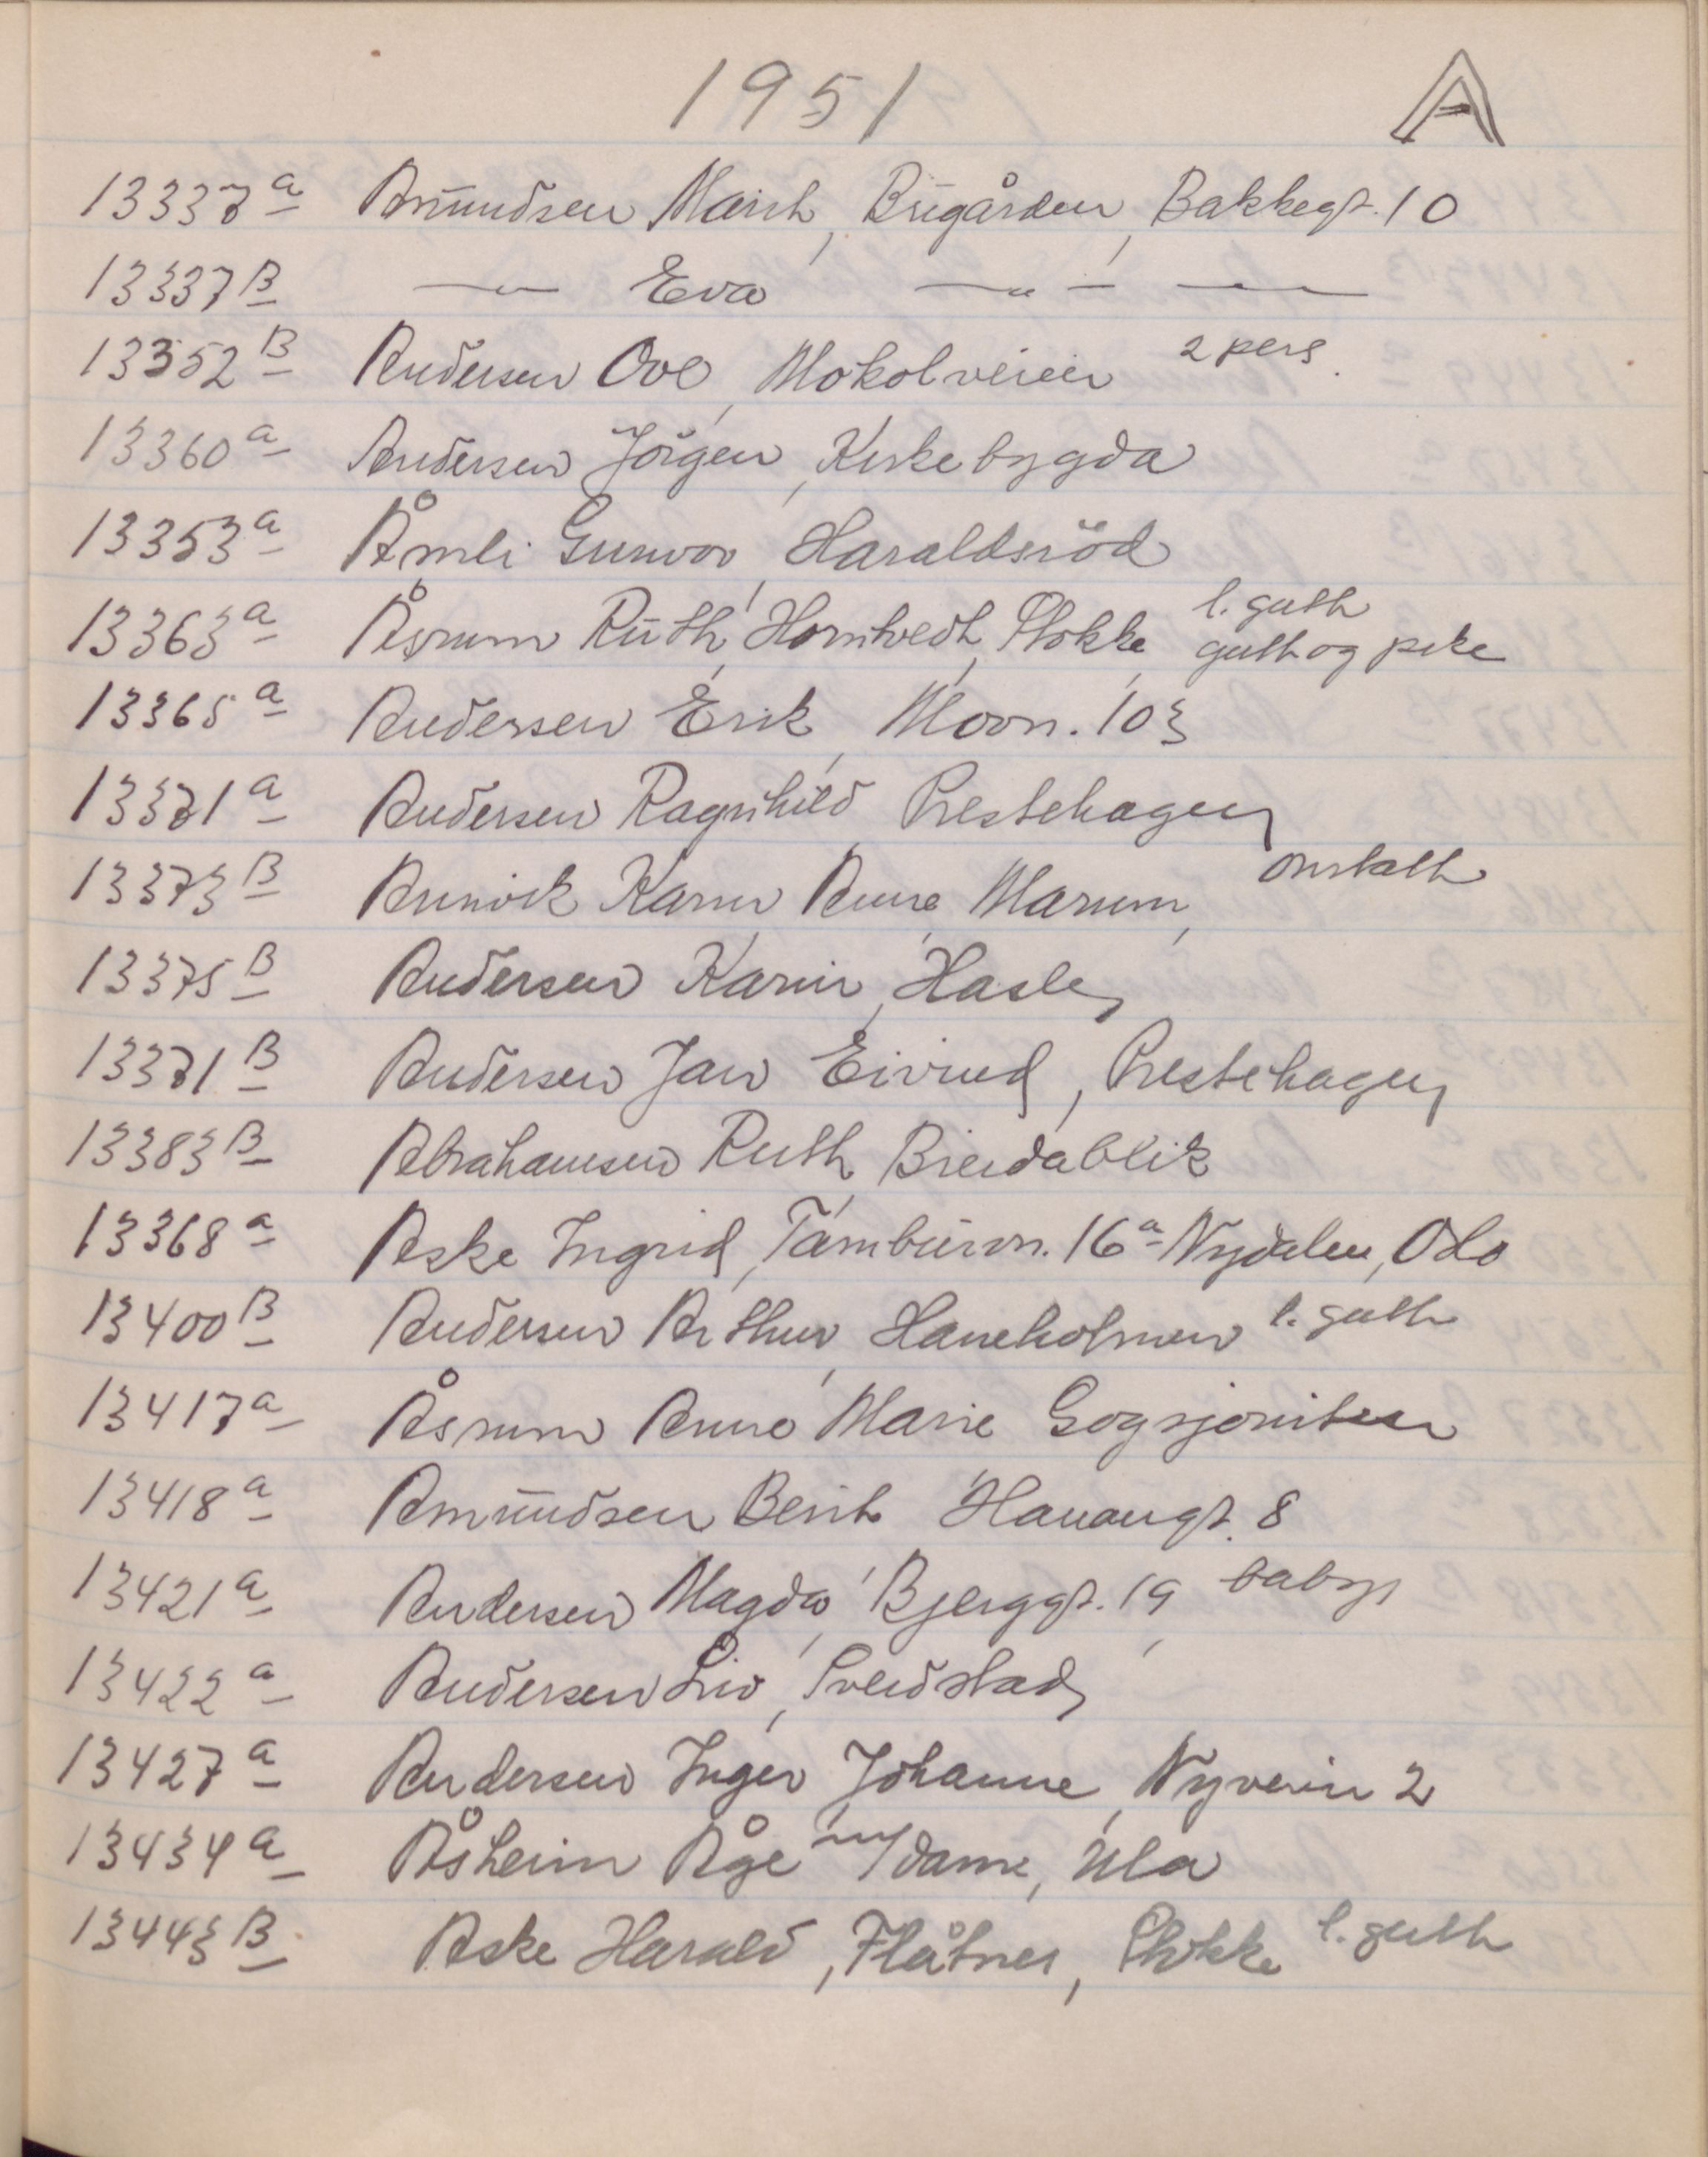 1951 A
13337a Amundsen Marit, Bugården, Bakkegt. 10
13337B —"— Eva —"— —"—
13352B Andersen Ove, Mokolveien 2 pers.
13360a Andersen Jörgen, Kirkebygda
13353a Åmli Gunvor, Haraldsröd
13363a Åsrum Ruth, Horntvedt, Stokke, l. gutt gutt og pike
13365a Andersen Erik, Moov. 103
13371a Andersen Ragnhild Prestehagen
13373B Karin Anne, Marum, onstatt
13375B Andersen Karin, Hasle
13371B Andersen Jan Eivind, Prestehagen
13383B Abrahamsen Ruth Breidablik
13368a Aske Ingrid, Tamburvn. 16a Nydalen, Oslo
13400B Andersen Arthur, Haneholmen l. gutt
13417a Åsrum Anne Marie Gogsjordet
13418a Amundsen Berit Hauangt. 8
13421a Andersen Magda, Bjerggt. 19, baby
13422a Andersen Liv, Sverdstad
13427a Andersen Inger Johanne, Nyveien 2
13434a Åsheim Åge m/dame, Ula
13443B Aske Harald, Flåtnes, Stokke l. gutt